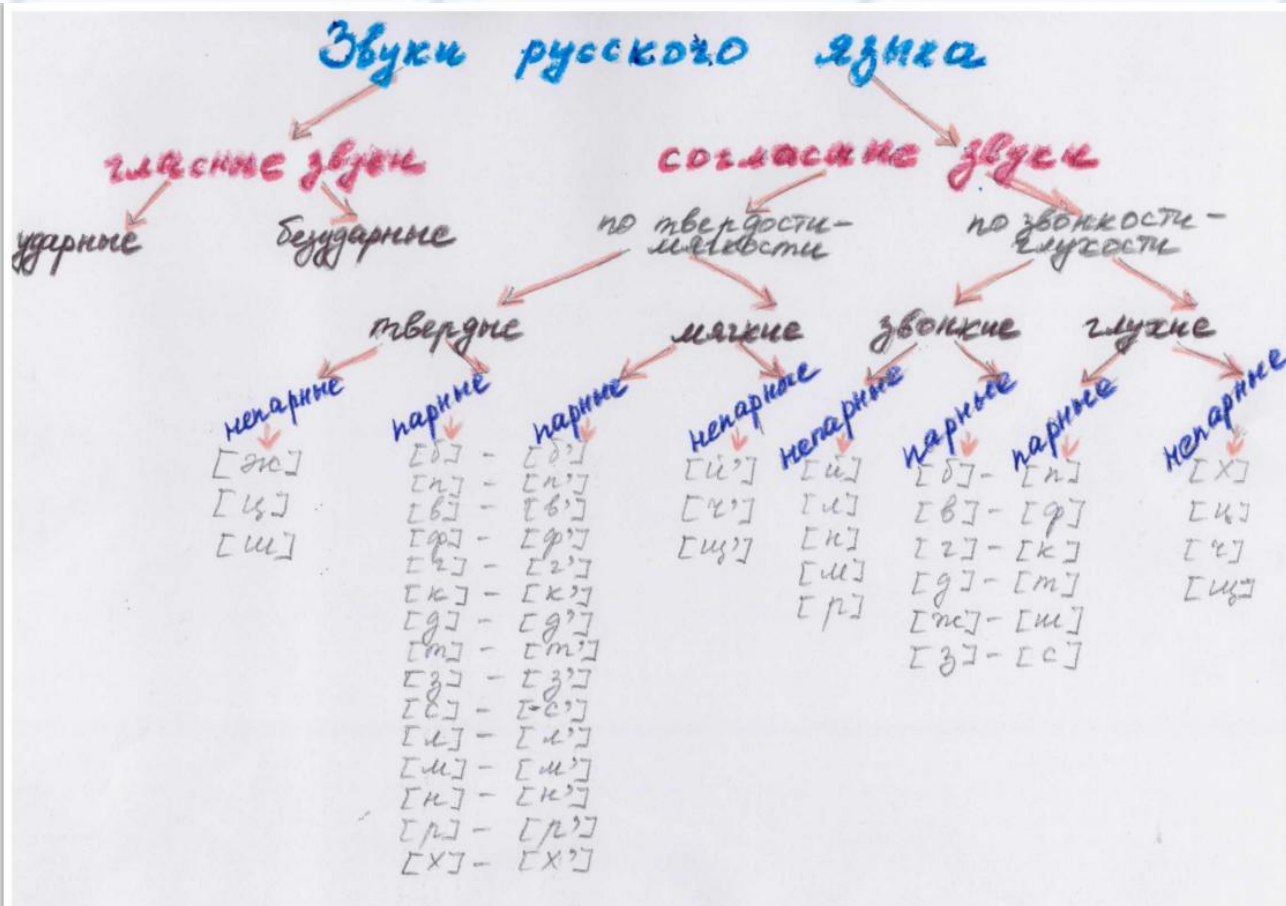 Звуки русского языка
гласные звуки
согласные звуки
ударные
безударные
по твердости-
мягкости
по звонкости-
глухости
твердые
мягкие
звонкие
глухие
непарные
[ж]
[ц]
[ш]
парные
парные
[б] - [б']
[п] - [п']
[в] - [в']
[ф] - [ф']
[г] - [г']
[к] - [к']
[д] - [д']
[т] - [т']
[з] - [з']
[с] - [с']
[л] - [л']
[м] - [м']
[н] - [н']
[р] - [р']
[х] - [х']
непарные
[й']
[ч']
[щ']
непарные
[й]
[л]
[н]
[м]
[р]
парные
парные
[б] - [п]
[в] - [ф]
[г] - [к]
[д] - [т]
[ж] - [ш]
[з] - [с]
непарные
[х]
[ц]
[ч]
[щ]